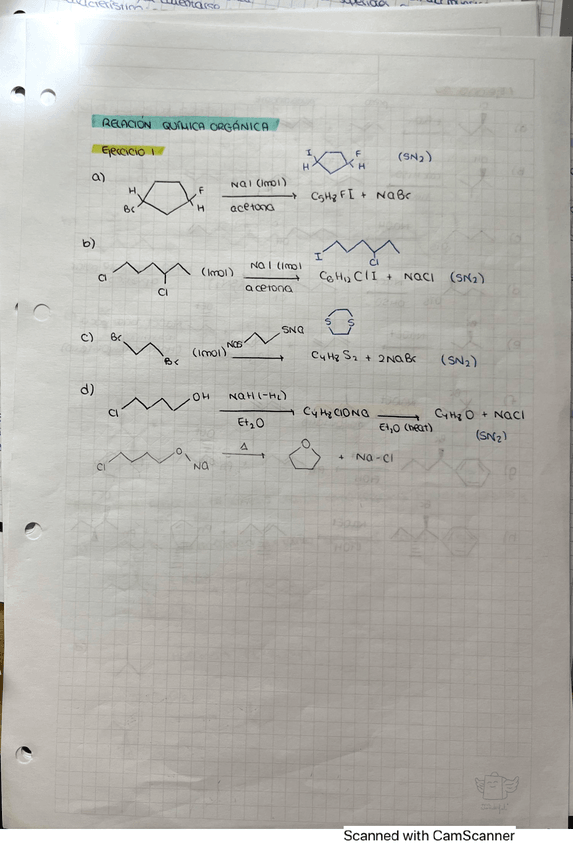 RELACIÓN QUÍMICA ORGÁNICA
Ejercicio 1
a) H Br F H NaI (1mol) acetona I H F H (SN2)
C5H8FI + NaBr
b) Cl Cl (1mol) NaI (1mol acetona I Cl
C6H12ClI + NaCl (SN2)
c) Br Br (1mol) NaS SNa S S
C4H8S2 + 2NaBr (SN2)
d) Cl OH NaH (-H2) Et2O C4H8ClONa Et2O (heat) C4H8O + NaCl
(SN2)
Cl O Na Δ O + Na-Cl
Scanned with CamScanner